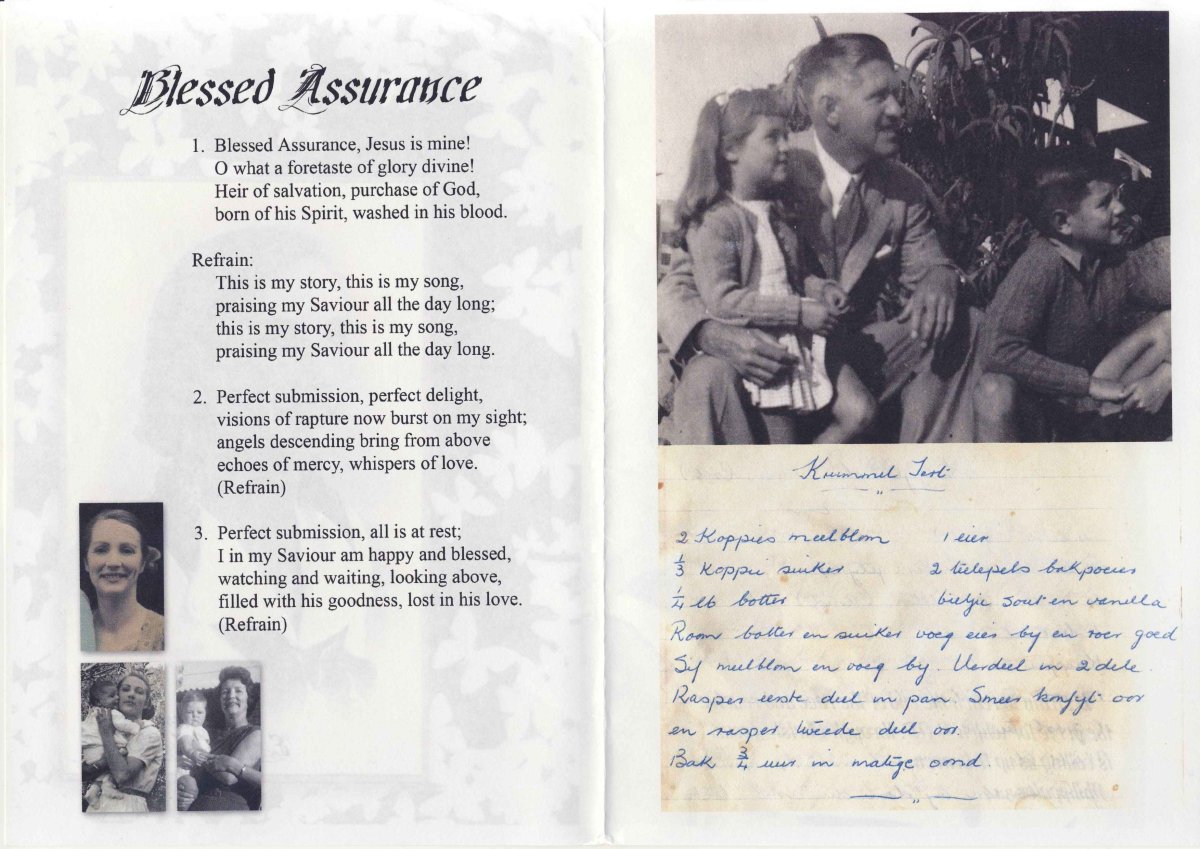 Blessed Assurance
1. Blessed Assurance, Jesus is mine!
O what a foretaste of glory divine!
Heir of salvation, purchase of God,
born of his Spirit, washed in his blood.
Refrain:
This is my story, this is my song,
praising my Saviour all the day long;
this is my story, this is my song,
praising my Saviour all the day long.
2. Perfect submission, perfect delight,
visions of rapture now burst on my sight;
angels descending bring from above
echoes of mercy, whispers of love.
(Refrain)
3. Perfect submission, all is at rest;
I in my Saviour am happy and blessed,
watching and waiting, looking above,
filled with his goodness, lost in his love.
(Refrain)
Krummel Tert
2 Koppies meelblom 1 eier
1/3 Koppie suiker 2 teelepels bakpoeier
1/4 lb botter bietjie sout en vanella
Room botter en suiker voeg eier by en roer goed
Sif meelblom en voeg by. Verdeel in 2 dele.
Rasper eerste deel in pan. Smeer konfyt oor
en rasper tweede deel oor.
Bak 3/4 uur in matige oond.